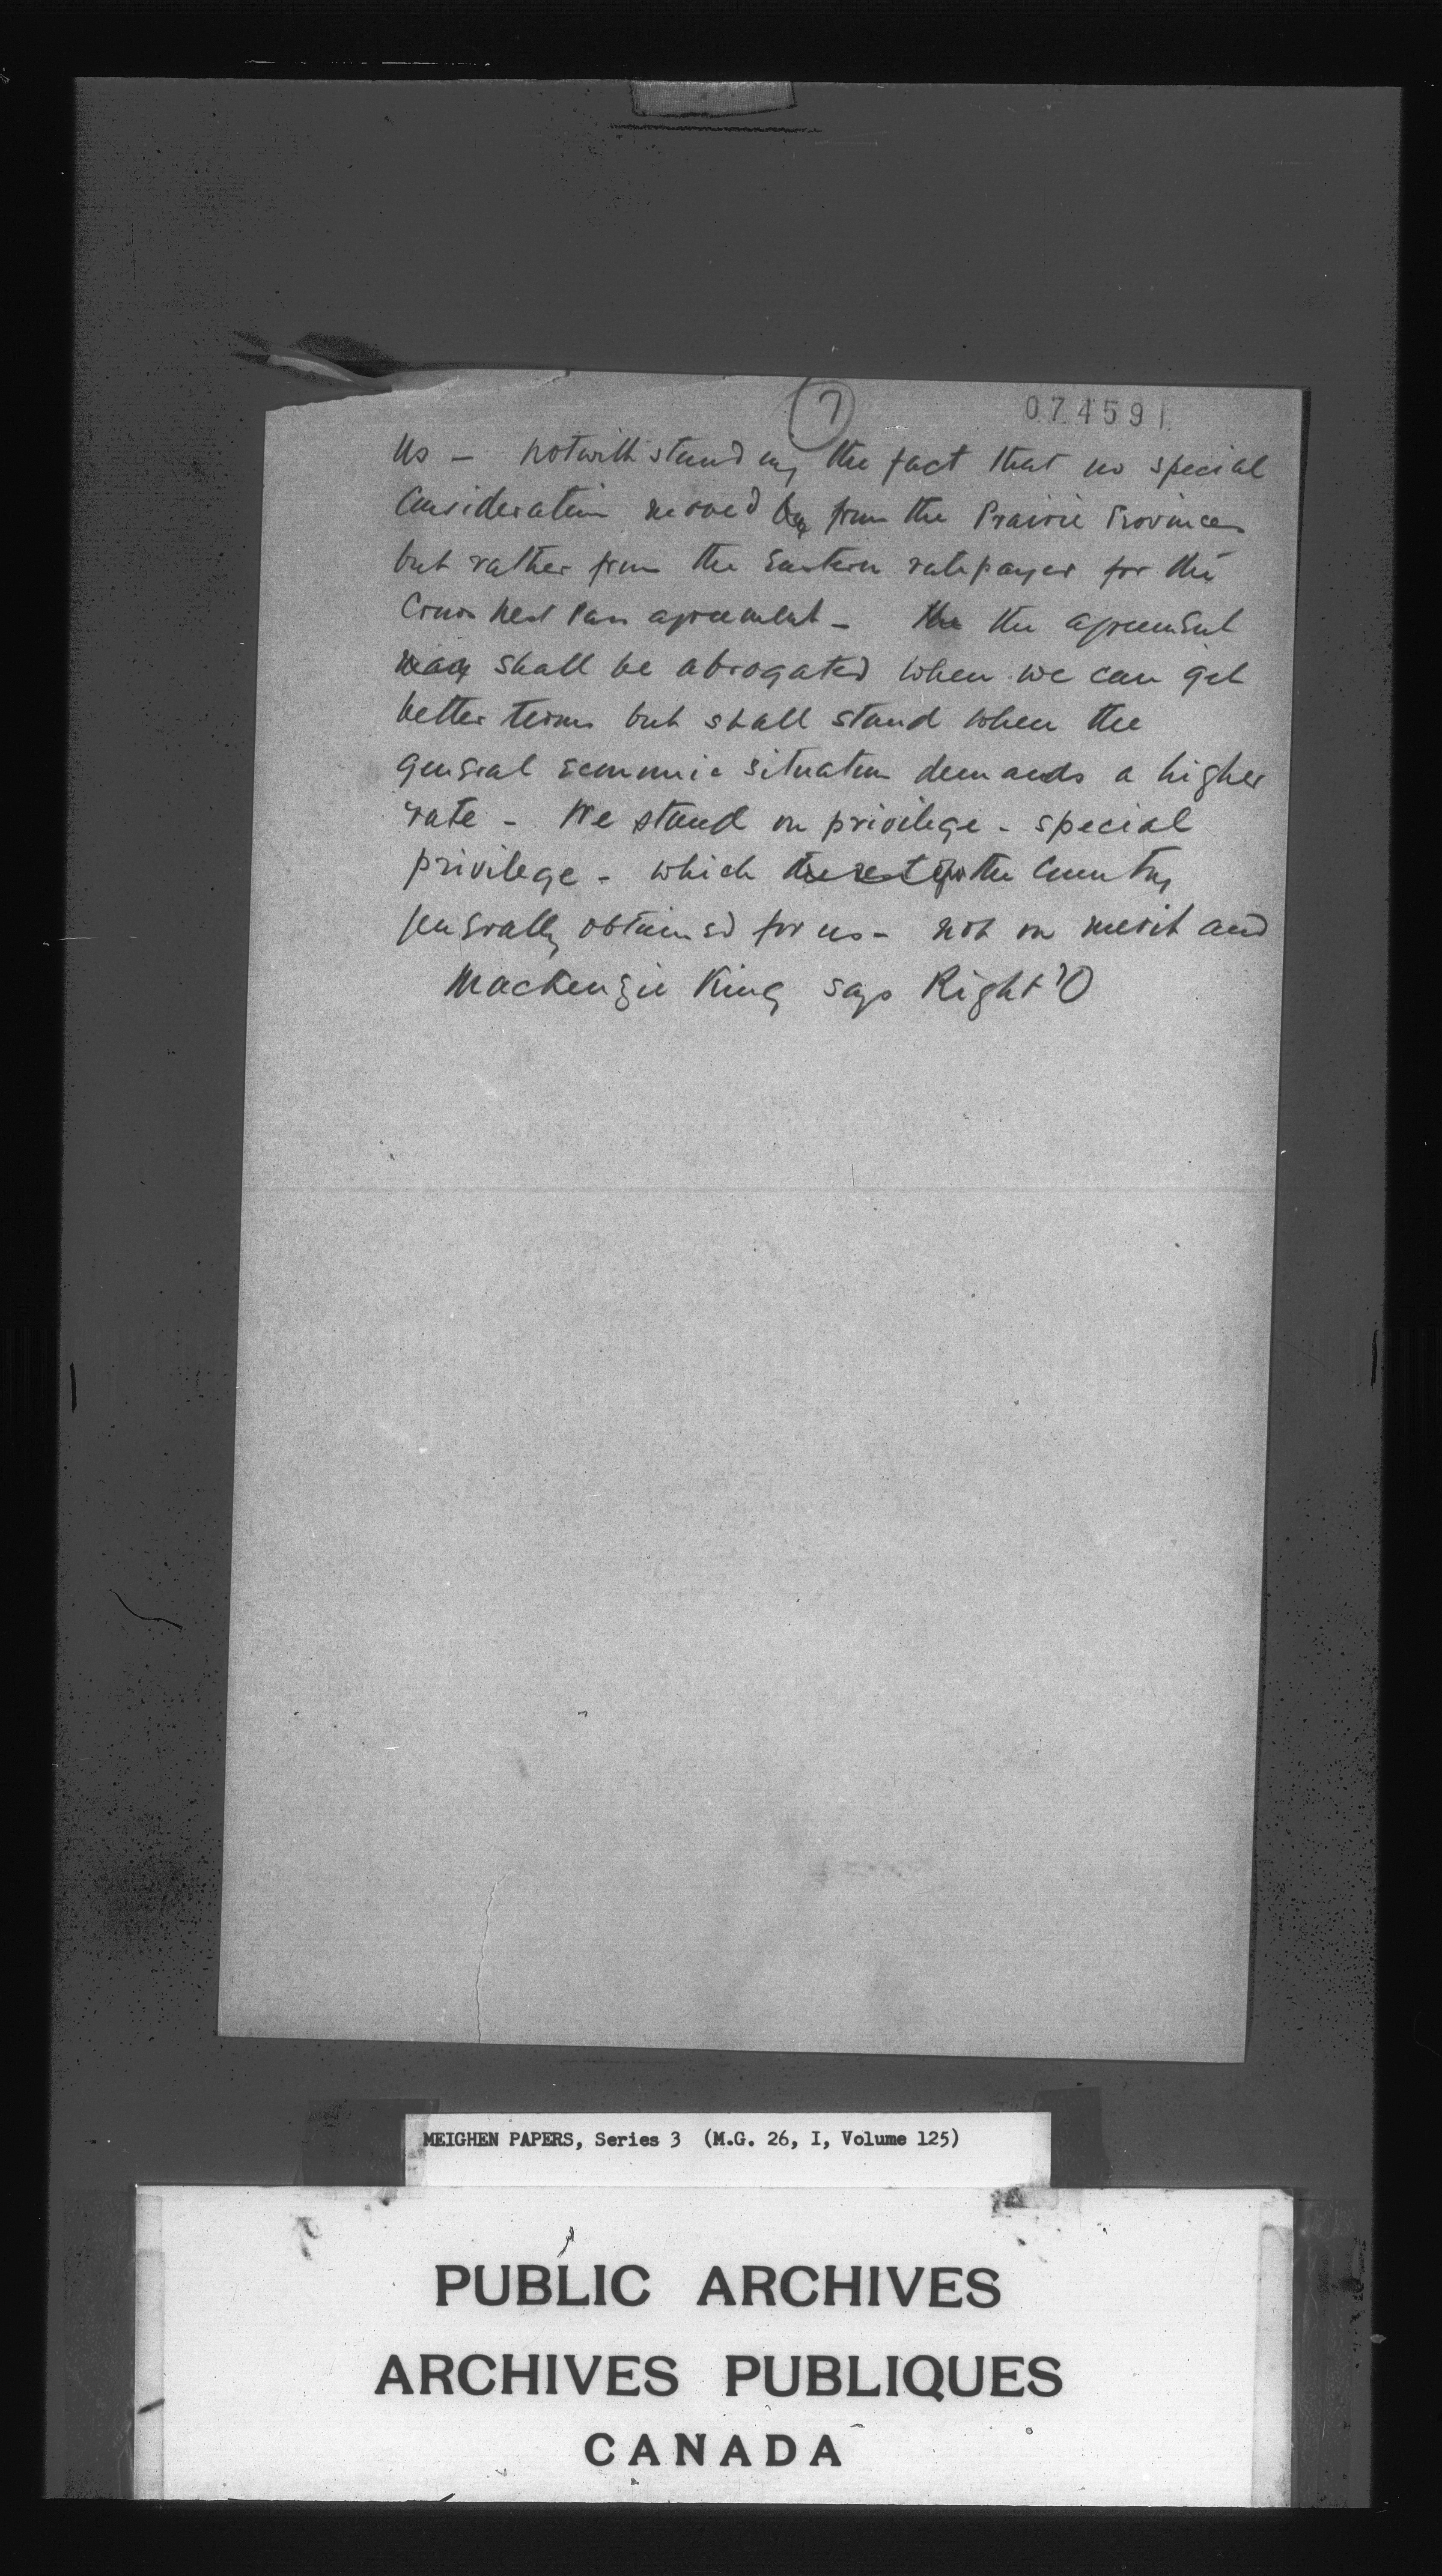 7
074591
us - notwithstanding the fact that no special
Consideration moved by from the Prairie Provinces
but rather from the Eastern ratepayer for the
Crows Nest Pass agreement - the the agreement
may shall be abrogated when we can get
better terms but shall stand when the
general economic situation demands a higher
rate - We stand on privilege - special
privilege - which the rest of the Country
generally obtained for us - not on merit and
Mackenzie King says Right'O
MEIGHEN PAPERS, Series 3 (M.G. 26, I, Volume 125)
PUBLIC ARCHIVES
ARCHIVES PUBLIQUES
CANADA